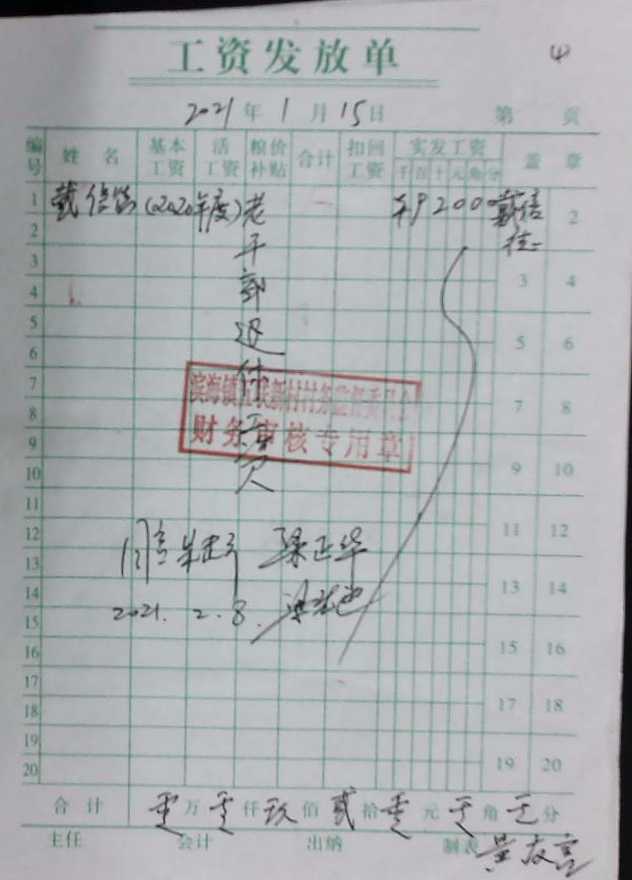 工资发放单
(4)
2021年1月15日 第 页
编号 姓名 基本工资 活工资 粮价补贴 合计 扣回工资 实发工资 盖章
千百十元角分
1 戴信 (2020年度)老 ¥92000 戴信 2
2
干
3 3 4
部
4
退
5 5 6
6
休
7 滨海镇联新村村务监督委员会 7 8
8 财务审核专用章
9 9 10
10
11 11 12
12 同意 梁正华
13 13 14
14 2021.2.8.
15 15 16
16
17 17 18
18
19 19 20
20
合计 零万零仟玖佰贰拾零元零角零分
主任 会计 出纳 制表 黄友富